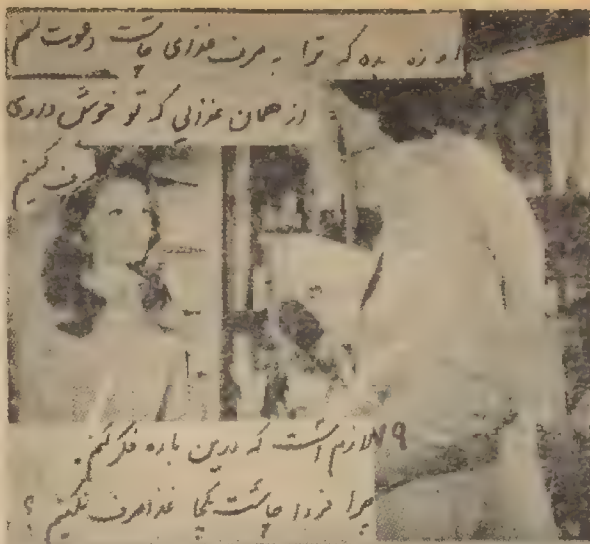 اجازه بده که ترا به صرف غذای چاشت دعوت کنم
از همان غذایی که تو خوش داری
صرف کنیم
۷۹ لازم است که درین باره فکر کنم.
چرا فردا چاشت یکجا غذا صرف نکنیم؟